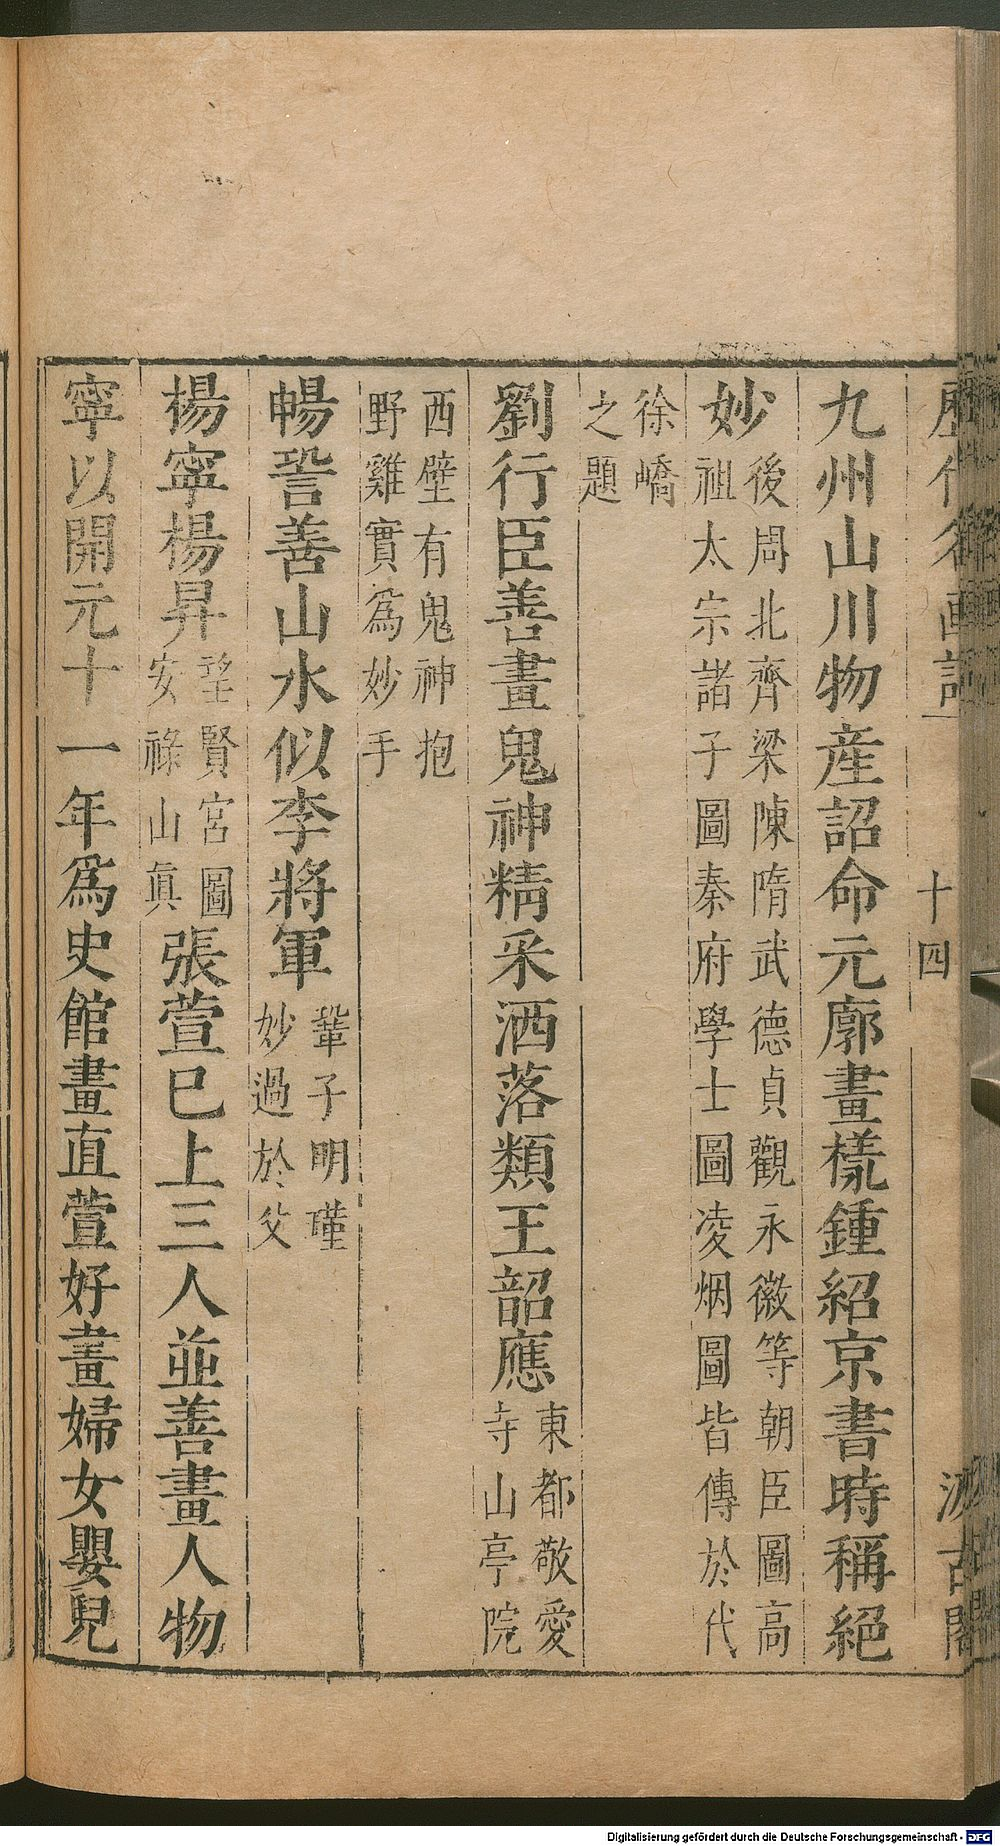 歷代名畫記 十四 汲古閣
九州山川物產詔命元廓畫樣鍾紹京書時稱絕
妙
後周北齊梁陳隋武德貞觀永徽等朝臣圖高
祖太宗諸子圖秦府學士圖凌烟圖皆傳於代
徐嶠
之題
劉行臣善畫鬼神精采洒落類王韶應
東都敬愛
寺山亭院
西壁有鬼神抱
野雞實爲妙手
暢𧫒善山水似李將軍
鞏子明瑾
妙過於父
楊寧楊昇
望賢宮圖
安祿山眞
張萱已上三人並善畫人物
寧以開元十一年爲史館畫直萱好畫婦女嬰兒
Digitalisierung gefördert durch die Deutsche Forschungsgemeinschaft - DFG